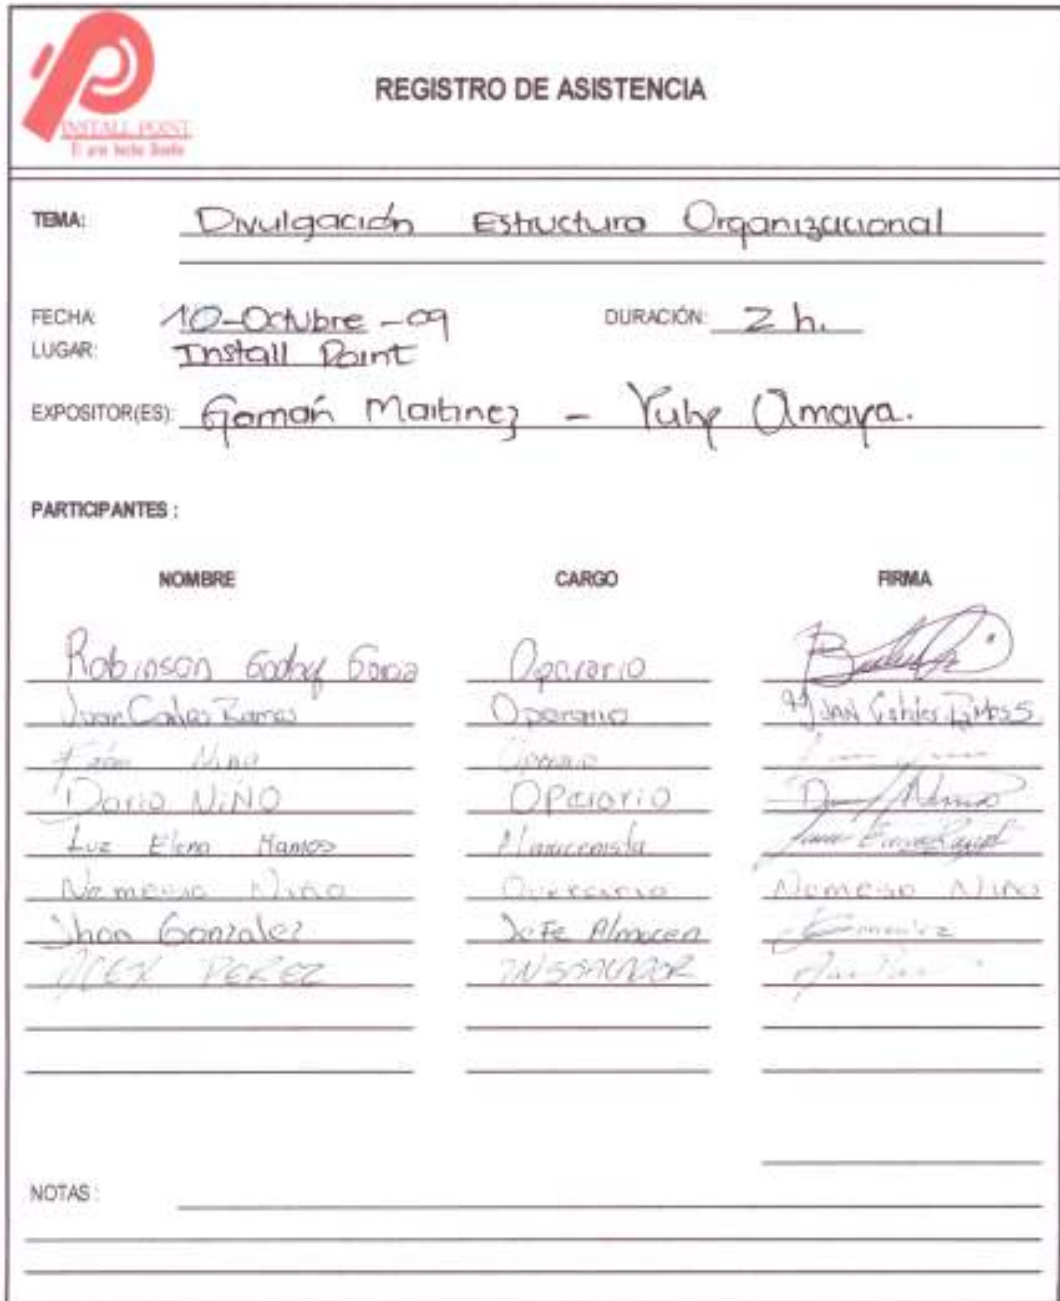 INSTALL POINT
El arte hecho Diseño
REGISTRO DE ASISTENCIA
TEMA: Divulgación Estructura Organizacional
FECHA: 10-Octubre-09 DURACIÓN: 2 h.
LUGAR: Install Point
EXPOSITOR(ES): Germán Martinez - Yuly Amaya.
PARTICIPANTES :
NOMBRE CARGO FIRMA
Robinson Godoy Garcia Operario
Juan Carlos Ramos Operario
Niño Operario
Dario NiÑO OPerario
Luz Elena Ramos Almacenista
Nemesio Niño Operario Nemesio Niño
Jhon Gonzalez JeFe Almacen
ALEX PEREZ INSTALADOR
NOTAS :